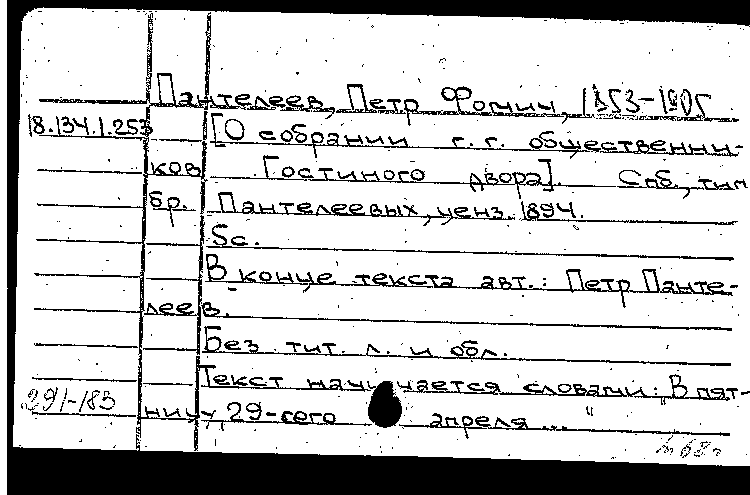 Пантелеев, Петр Фомич, 1853-1905
18.134.1.253 [О собрании г.г. общественни-
ков Гостиного двора]. Спб., тип.
бр. Пантелеевых, ценз. 1894.
5с.
В конце текста авт.: Петр Панте-
леев.
Без тит. л. и обл.
Текст начинается словами: "В пят-
291-183 ницу, 29-сего апреля ..."